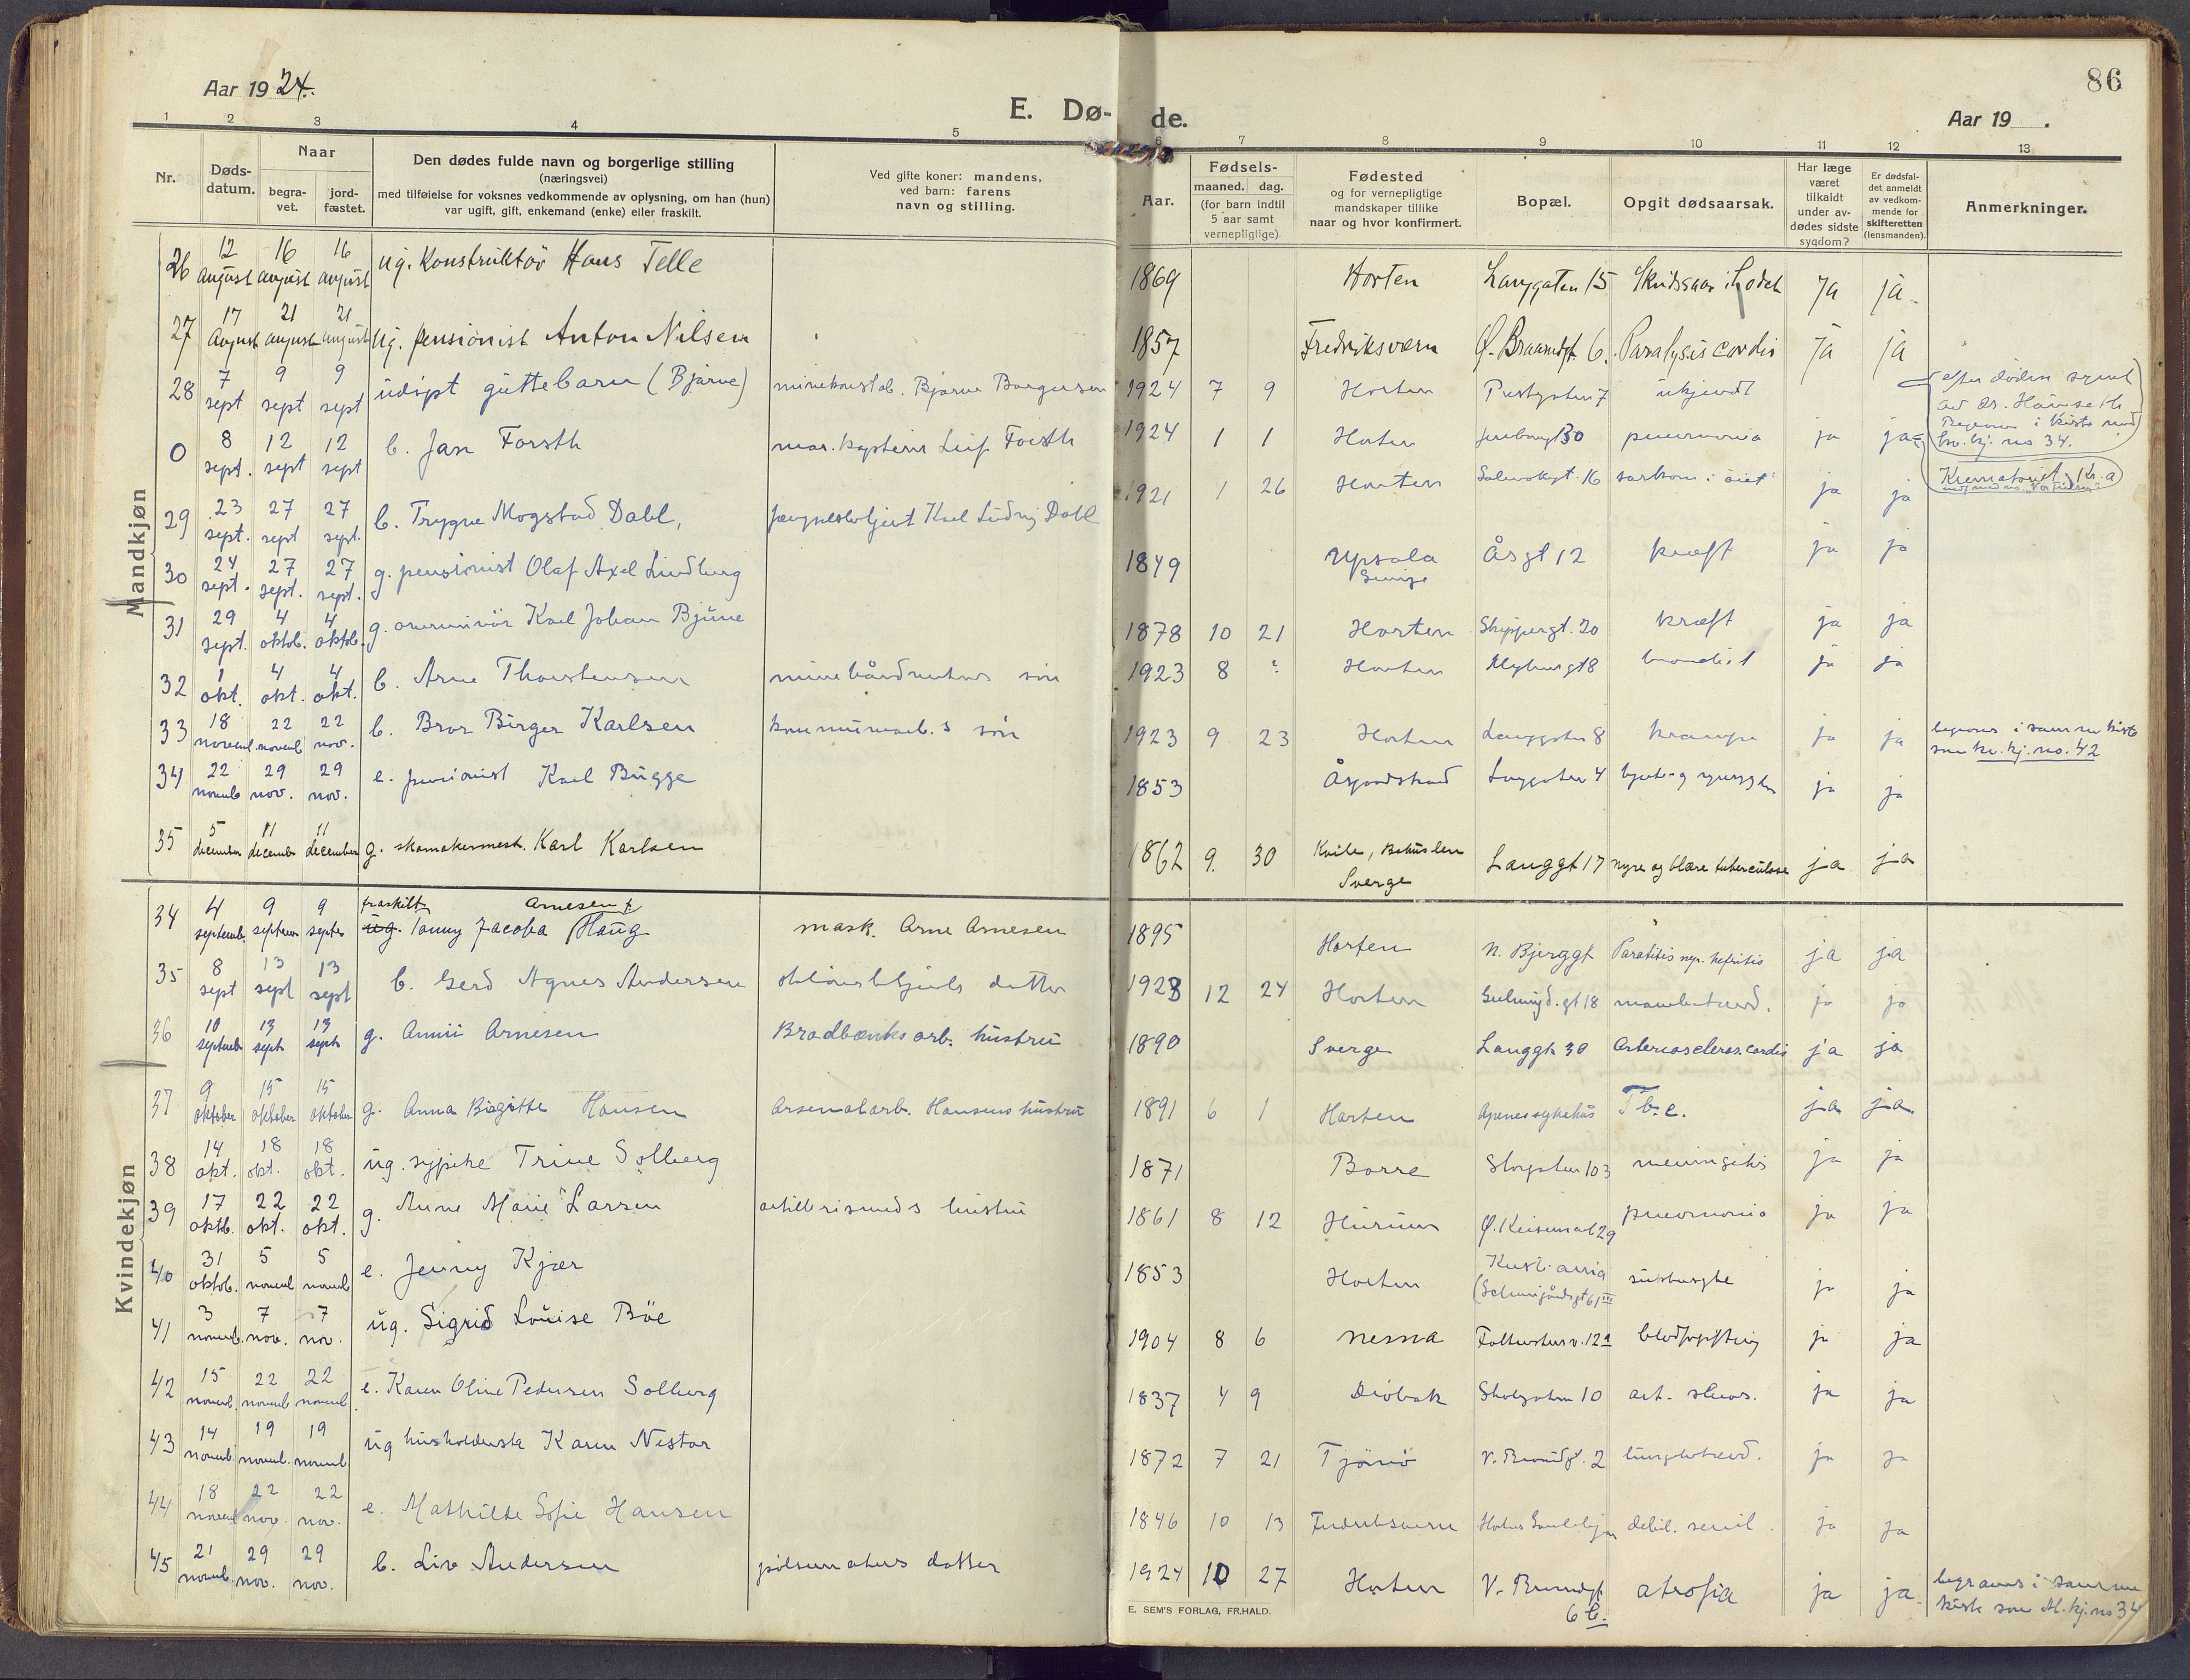 Aar 1924.
E. Dø-
de.
Aar 19 .
86
1 2 3 4 5 6 7 8 9 10 11 12 13
Nr.
Døds-
datum.
Naar
begra-
vet.
jord-
fæstet.
Den dødes fulde navn og borgerlige stilling
(næringsvei)
med tilføielse for voksnes vedkommende av oplysning, om han (hun)
var ugift, gift, enkemand (enke) eller fraskilt.
Ved gifte koner: mandens,
ved barn: farens
navn og stilling.
Aar.
Fødsels-
maaned. dag.
(for barn indtil
5 aar samt
vernepligtige)
Fødested
og for vernepligtige
mandskaper tillike
naar og hvor konfirmert.
Bopæl.
Opgit dødsaarsak.
Har læge
været
tilkaldt
under av-
dødes sidste
sygdom?
Er dødsfal-
det anmeldt
av vedkom-
mende for
skifteretten
(lensmanden).
Anmerkninger.
Mandkjøn
26 12 august 16 august 16 august ug. Konstruktör Hans Telle 1869 Horten Langgaten 15 Skudsaar i hodet ja ja
27 17 August 21 august 21 august ug. pensionist Anton Nilsen 1857 Fredriksværn Ø. Braarudgt. 6. Paralysis cordis ja ja
28 7 sept 9 sept 9 sept udöpt guttebarn (Bjarne) minekonstab. Bjarne Borgersen 1924 7 9 Horten 7 ukjendt
efter döden synet
av dr.
i kiste med
kv. kj. no 34.
0 8 sept. 12 sept 12 sept b. Jan Forsth mar. kaptein Leif Forsth 1924 1 1 Horten 30 pneumonia ja ja
Krematoriet, Kr.a
29 23 sept. 27 sept 27 sept. b. Trygve Mogstad Dahl, Karl Ludvig Dahl 1921 1 26 Horten 16 sarkom i öiet ja ja
30 24 sept. 27 sept. 27 sept. g. pensionist Olaf Axel Lindberg 1849 Upsala Sverige Åsgt 12 kræft ja ja
31 29 sept. 4 oktob. 4 oktob. g. Karl Johan Bjune 1878 10 21 Horten Skippergt. 20 kræft ja ja
32 1 okt. 4 okt. 4 okt. b. Arne Thorstensen sön 1923 8 ? Horten Nyburgt 8 ja ja
33 18 novemb. 22 novemb 22 nov. b. Bror Birger Karlsen kommunearb.s sön 1923 9 23 Horten Langgaten 8 krampe ja ja
begraves i samme kiste
som kv. kj. no. 42
34 22 novemb 29 nov. 29 nov. e. pensionist Karl Bugge 1853 Åsgaardstrand Langgaten 4 ja ja
35 5 december 11 december 11 december g. skomakermest. Karl Karlsen 1862 9. 30 Kville, Bohuslen Sverge Langgt 17 nyre og blære tuberculose ja ja
Kvindekjøn
34 4 septemb. 9 septem 9 septem fraskilt ug. Tonny Jacoba Haug Arnesen f. mask. Arne Arnesen 1895 Horten N. Bjerggt Parotitis ja ja
35 8 sept 13 sept 13 sept b. Gerd Agnes Andersen datter 1923 12 24 Horten 18 ja ja
36 10 septemb 13 sept 13 sept g. Anni Arnesen Bradbænksarb. hustru 1890 Sverge Langgt 30 Arterioscleros. cordis ja ja
37 9 oktober 15 oktober 15 oktober g. Anna Birgitte Hansen Arsenalarb. Hansens hustru 1891 6 1 Horten Apenes sykehus Tb.c. ja ja
38 14 okt. 18 okt. 18 okt. ug. sypike Trine Solberg 1871 Borre Storgaten 103 meningitis ja ja
39 17 oktb. 22 okt. 22 okt. g. Anne Marie Larsen artillerismeds hustru 1861 8 12 Hurum Ø. Keisemark 29 pneumonia ja ja
40 31 oktob. 5 novemb 5 novemb e. Jenny Kjær 1853 Horten sukkersyke ja ja
41 3 novemb. 7 nov. 7 nov. ug. Sigrid Louise Böe 1904 8 6 Nesna 12a blodforgiftning ja ja
42 15 novemb. 22 novemb 22 novemb e. Karen Oline Pedersen Solberg 1837 4 9 Dröbak 10 art. scleros. ja ja
43 14 novemb. 19 novemb. 19 novemb ug husholderske Karen Nestor 1872 7 21 Tjömö V. Braarudgt. 2 lungebetænd. ja ja
44 18 novemb 22 nov. 22 nov. e. Mathilde Sofie Hansen 1846 10 13 Fredriksværn Horten Gamlehjem debil. senil. ja ja
45 21 novemb. 29 nov. 29 nov. b. Liv Andersen pölsemakers datter 1924 10 27 Horten V. Braarudgt 6 b. atrofia ja ja
begraves i samme
kiste som M.kj. no 34
E. SEM'S FORLAG, FR.HALD.